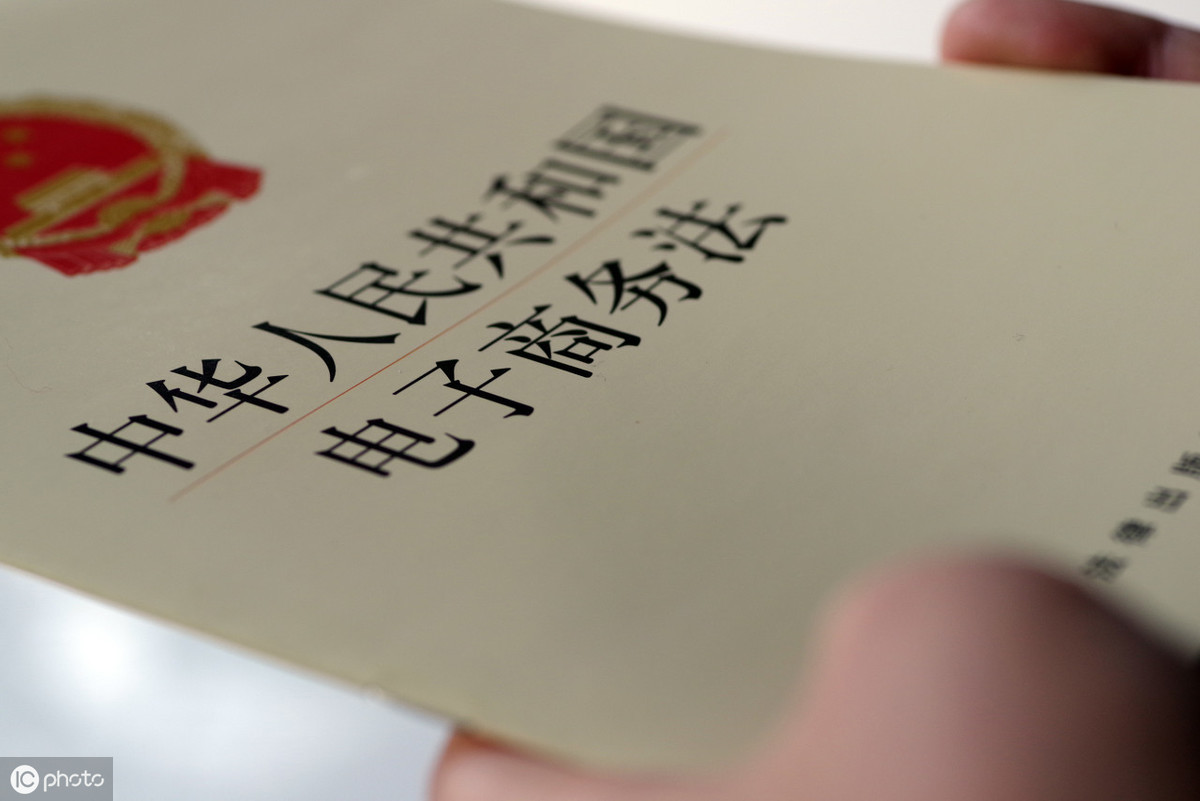 中华人民共和国
电子商务法
法律出版
IC photo